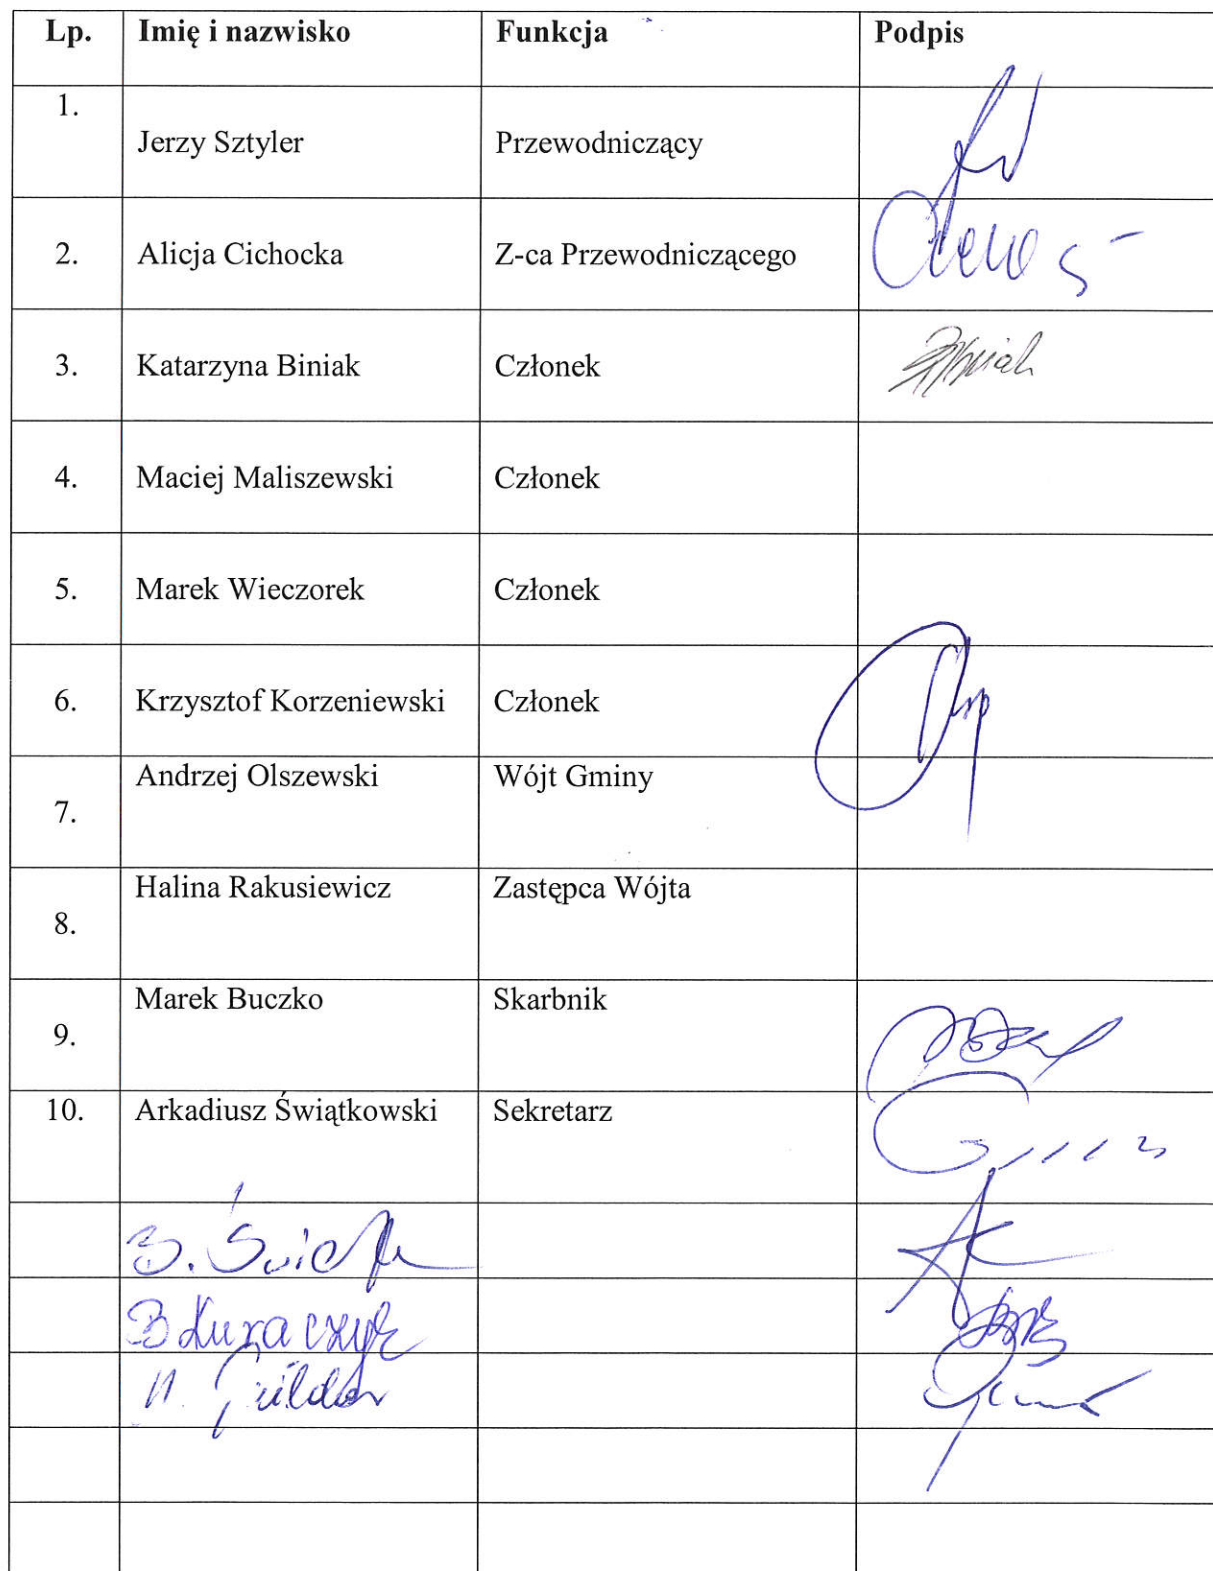 Lp. Imię i nazwisko Funkcja Podpis
1. Jerzy Sztyler Przewodniczący
2. Alicja Cichocka Z-ca Przewodniczącego
3. Katarzyna Biniak Członek
4. Maciej Maliszewski Członek
5. Marek Wieczorek Członek
6. Krzysztof Korzeniewski Członek
7. Andrzej Olszewski Wójt Gminy
8. Halina Rakusiewicz Zastępca Wójta
9. Marek Buczko Skarbnik
10. Arkadiusz Świątkowski Sekretarz
B.
B